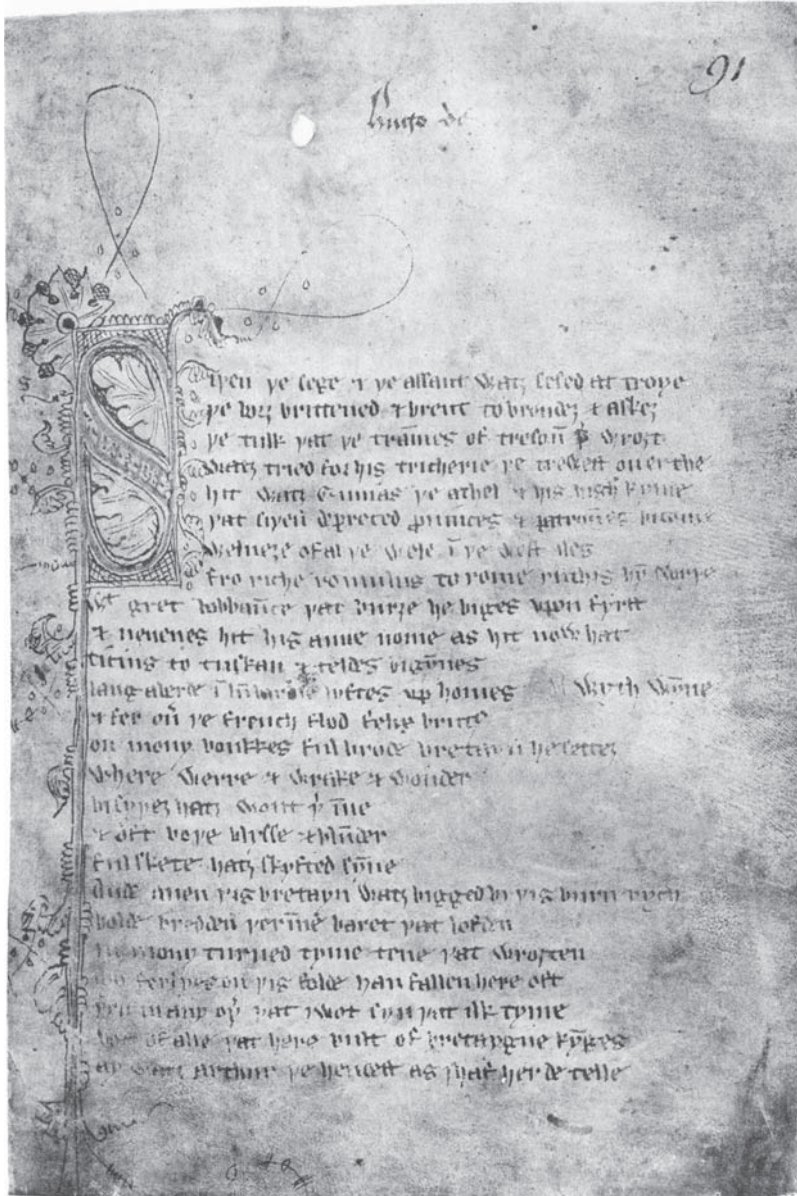 91
Hugo de
Siþen þe sege & þe assaut watȝ sesed at troye
þe borȝ brittened & brent to brondeȝ & askeȝ
þe tulk þat þe tram̅es of tresoū þ̉ wroȝt
watȝ tried for his tricherie þe trewest on erthe
hit watȝ Ennias þe athel & his highe kynde
þat siþen depreced puinces & patroūes bicome
welneȝe of al þe wele ī þe west iles
fro riche romulus to rome ricchis hȳ swyþe
wᵗ gret bobbaūce þat burȝe he biges vpon fyrst
& neuenes hit his aune nome as hit now hat
ticius to tuskan & teldes bigȳnes
langaberde ī lūbardie lyftes vp homes wyth wȳne
& fer ou̅ þe french flod felix brutꝰ
on mony bonkkes ful brode bretayn he setteȝ
where werre & wrake & wonder
bi syþeȝ hatȝ wont þ̉ īne
& oft boþe blysse & blūder
ful skete hatȝ skyfted sȳne
Ande quen þis bretayn watȝ bigged bi þis burn rych
bolde bredden þerīne baret þat lofden
in mony turned tyme tene þat wroȝten
mo ferlyes on þis folde han fallen here oft
þen in any oþ̉ þat I wot syn þat ilk tyme
bot of alle þat here bult of bretaygne kȳges
ay watȝ arthur þe hendest as I haf herde telle